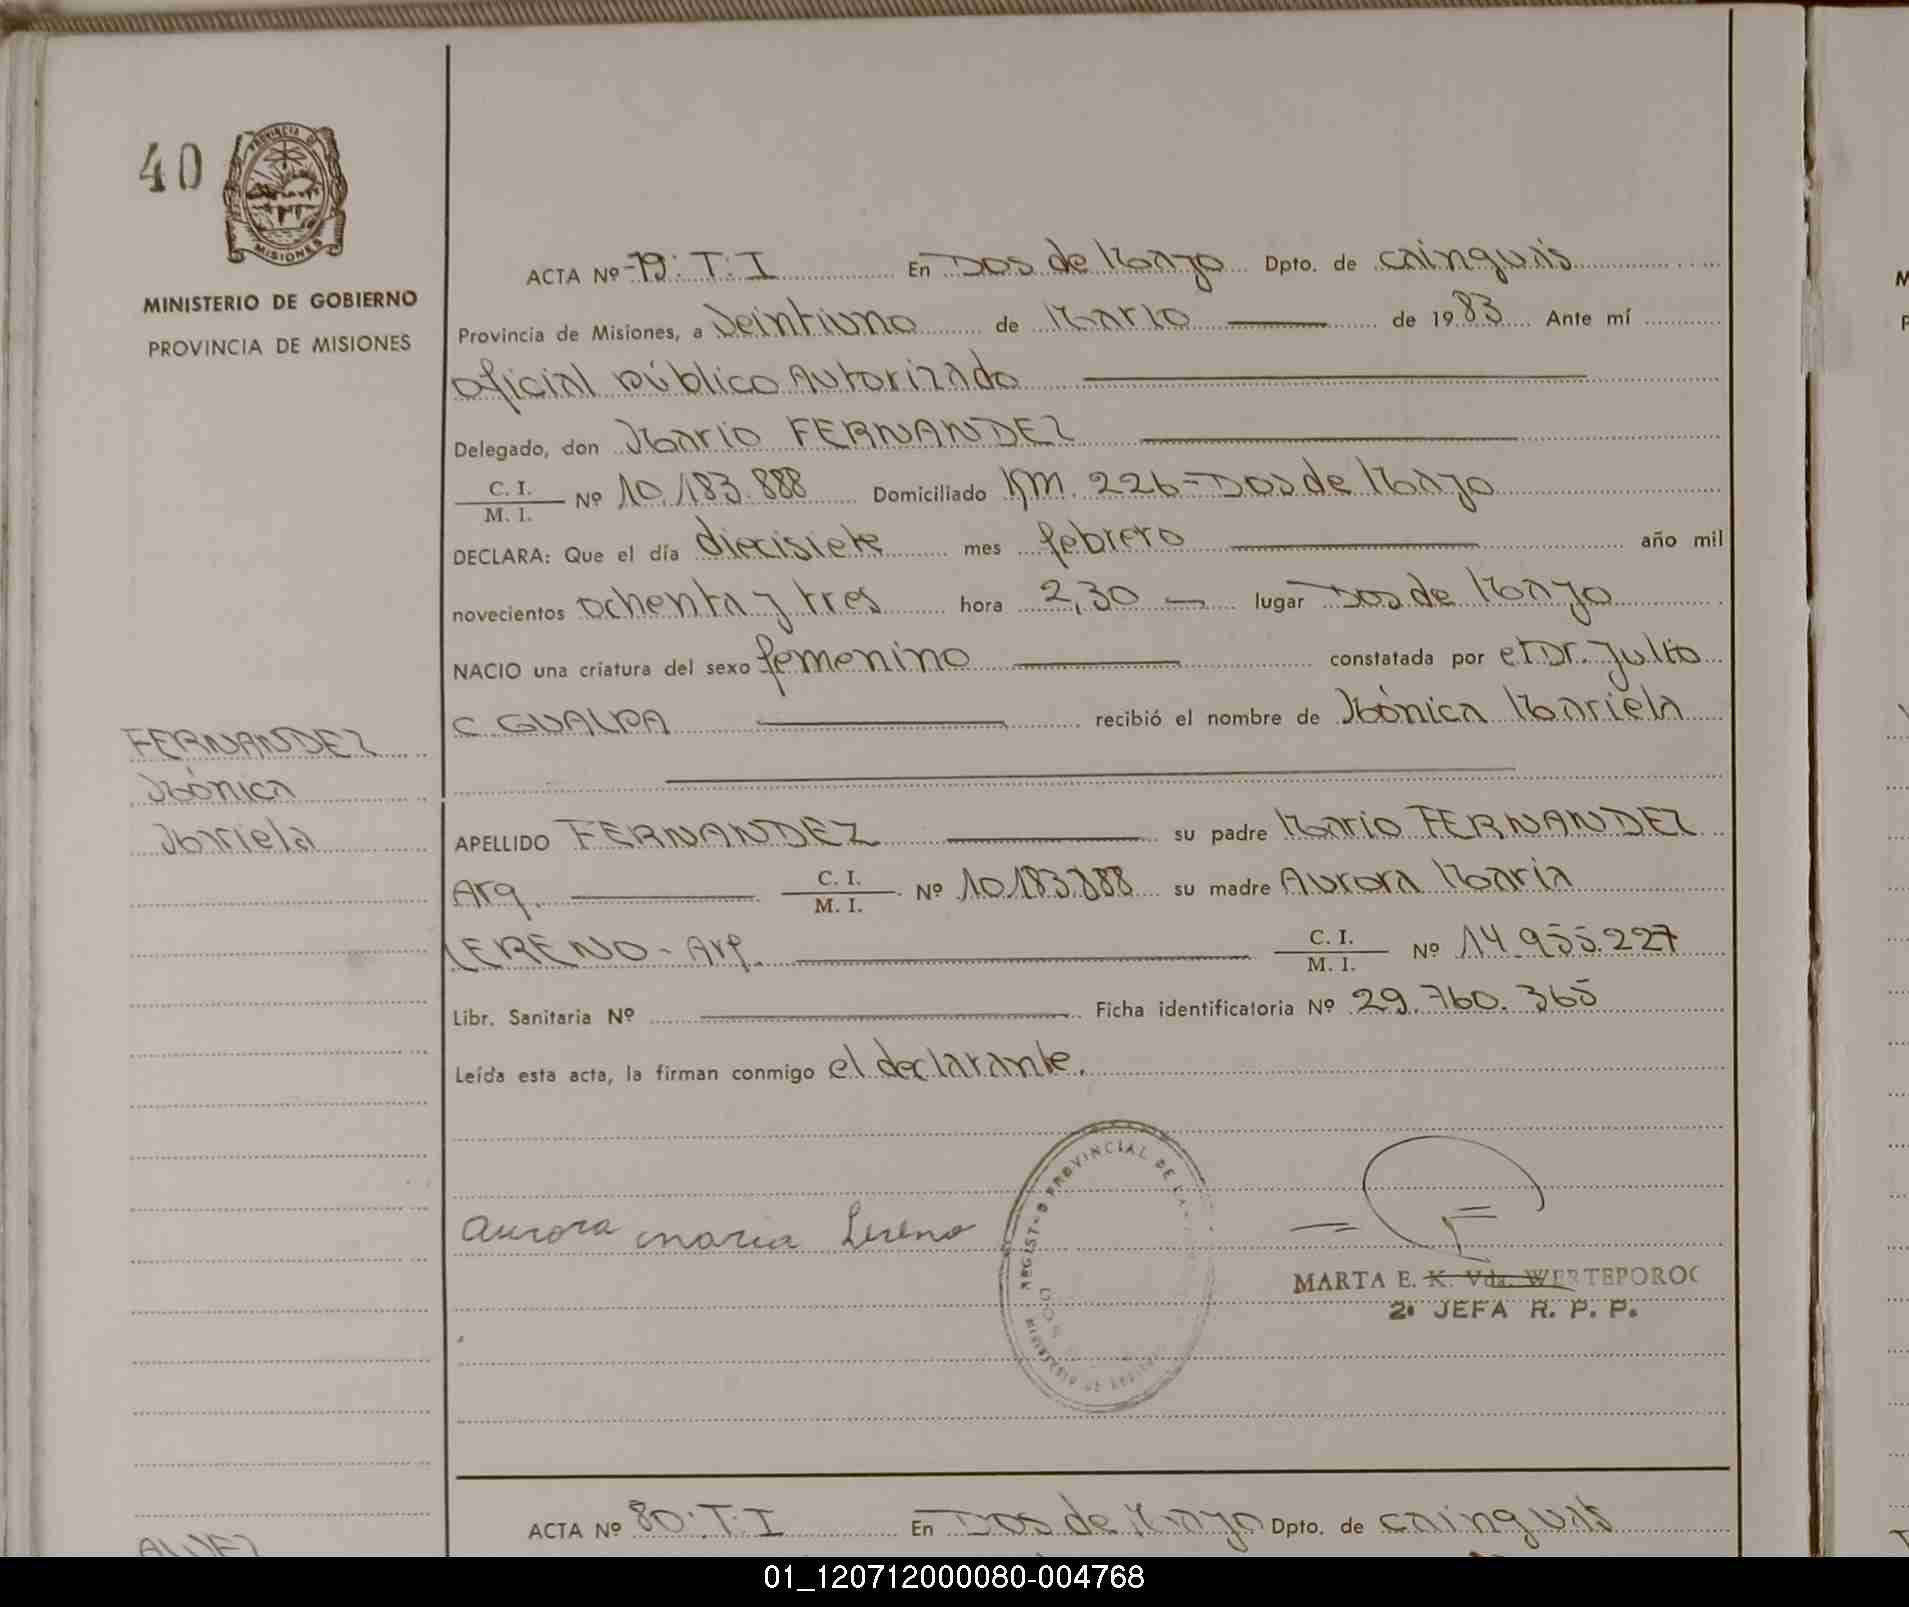 40
PROVINCIA DE
MISIONES
MINISTERIO DE GOBIERNO
PROVINCIA DE MISIONES
ACTA Nº 79. T. I En Dos de Mayo Dpto. de Cainguás
Provincia de Misiones, a Veintiuno de Marzo de 1983 Ante mí
Oficial Público Autorizado
Delegado, don Mario FERNANDEZ
C. I.
M. I. Nº 10.183.888 Domiciliado Km. 226-Dos de Mayo
DECLARA: Que el día diecisiete mes febrero año mil
novecientos ochenta y tres hora 2,30 lugar Dos de Mayo
NACIO una criatura del sexo femenino constatada por el Dr. Julio
C. GUALPA recibió el nombre de Mónica Mariela
FERNANDEZ
Mónica
Mariela
APELLIDO FERNANDEZ su padre Mario FERNANDEZ
Arg. C. I.
M. I. Nº 10.183.888 su madre Aurora Maria
LERENO - Arg. C. I.
M. I. Nº 14.955.227
Libr. Sanitaria Nº Ficha identificatoria Nº 29.760.365
Leída esta acta, la firman conmigo el declarante.
PROVINCIAL DE
Aurora maria Lereno
MARTA E. K. Vda. WERTEPOROC
2ª JEFA R. P. P.
ACTA Nº 80. T. I En Dos de Mayo Dpto. de Cainguás
01_120712000080-004768